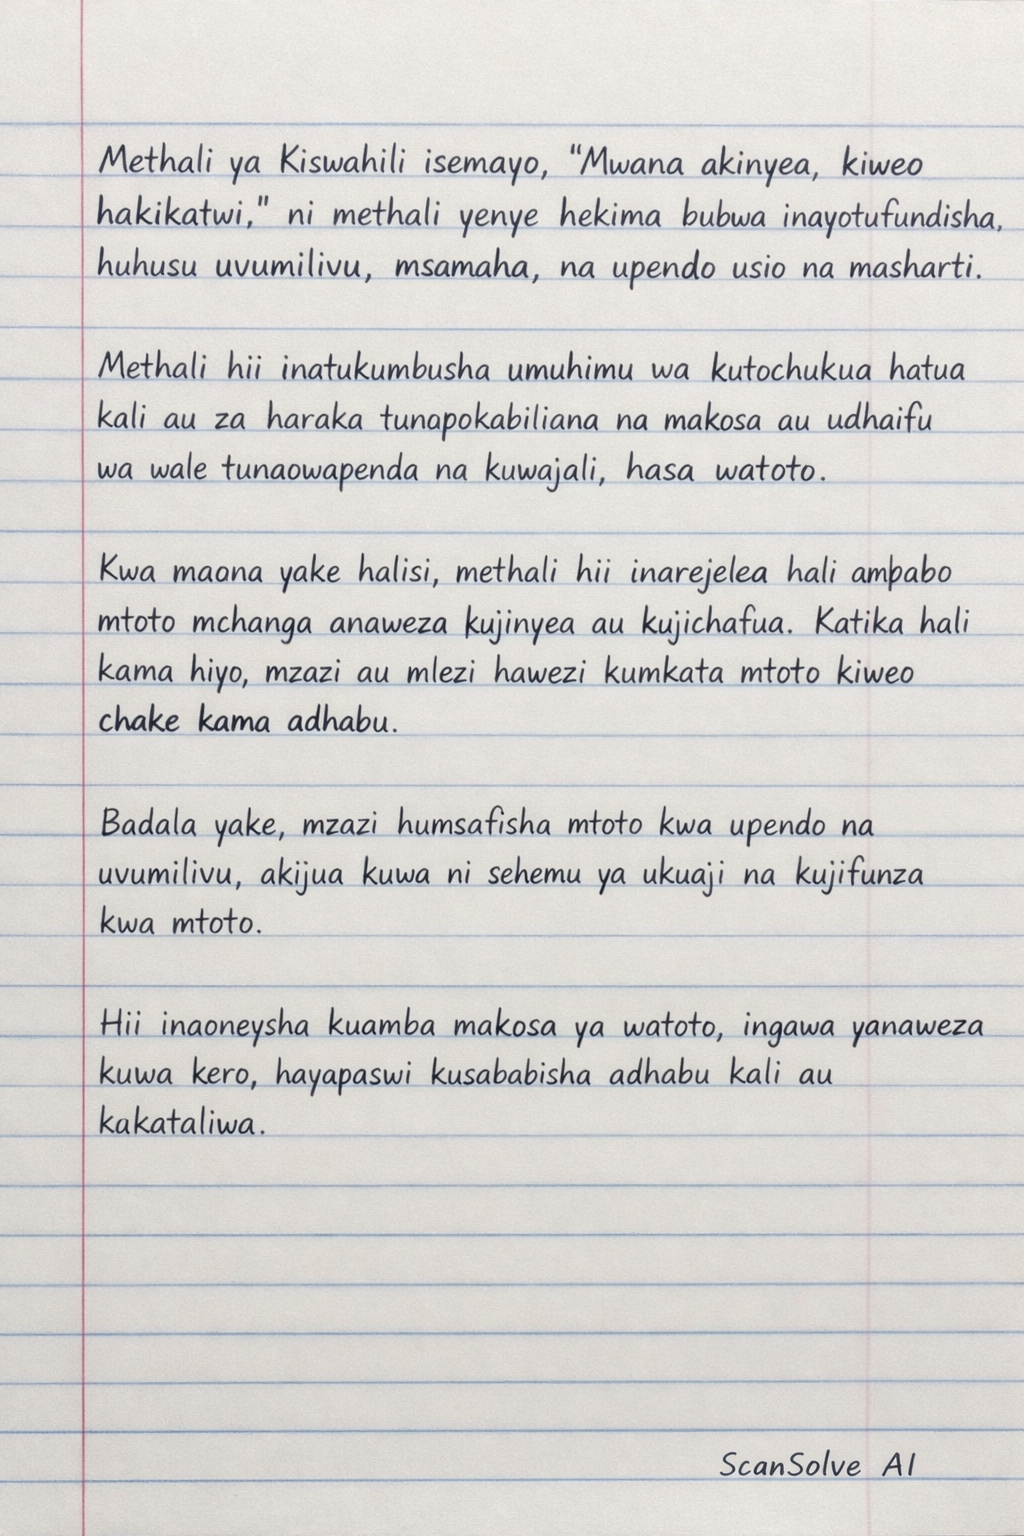 Methali ya Kiswahili isemayo, "Mwana akinyea, kiweo
hakikatwi," ni methali yenye hekima bubwa inayotufundisha,
huhusu uvumilivu, msamaha, na upendo usio na masharti.
Methali hii inatukumbusha umuhimu wa kutochukua hatua
kali au za haraka tunapokabiliana na makosa au udhaifu
wa wale tunaowapenda na kuwajali, hasa watoto.
Kwa maana yake halisi, methali hii inarejelea hali ambabo
mtoto mchanga anaweza kujinyea au kujichafua. Katika hali
kama hiyo, mzazi au mlezi hawezi kumkata mtoto kiweo
chake kama adhabu.
Badala yake, mzazi humsafisha mtoto kwa upendo na
uvumilivu, akijua kuwa ni sehemu ya ukuaji na kujifunza
kwa mtoto.
Hii inaoneysha kuamba makosa ya watoto, ingawa yanaweza
kuwa kero, hayapaswi kusababisha adhabu kali au
kakataliwa.
ScanSolve AI